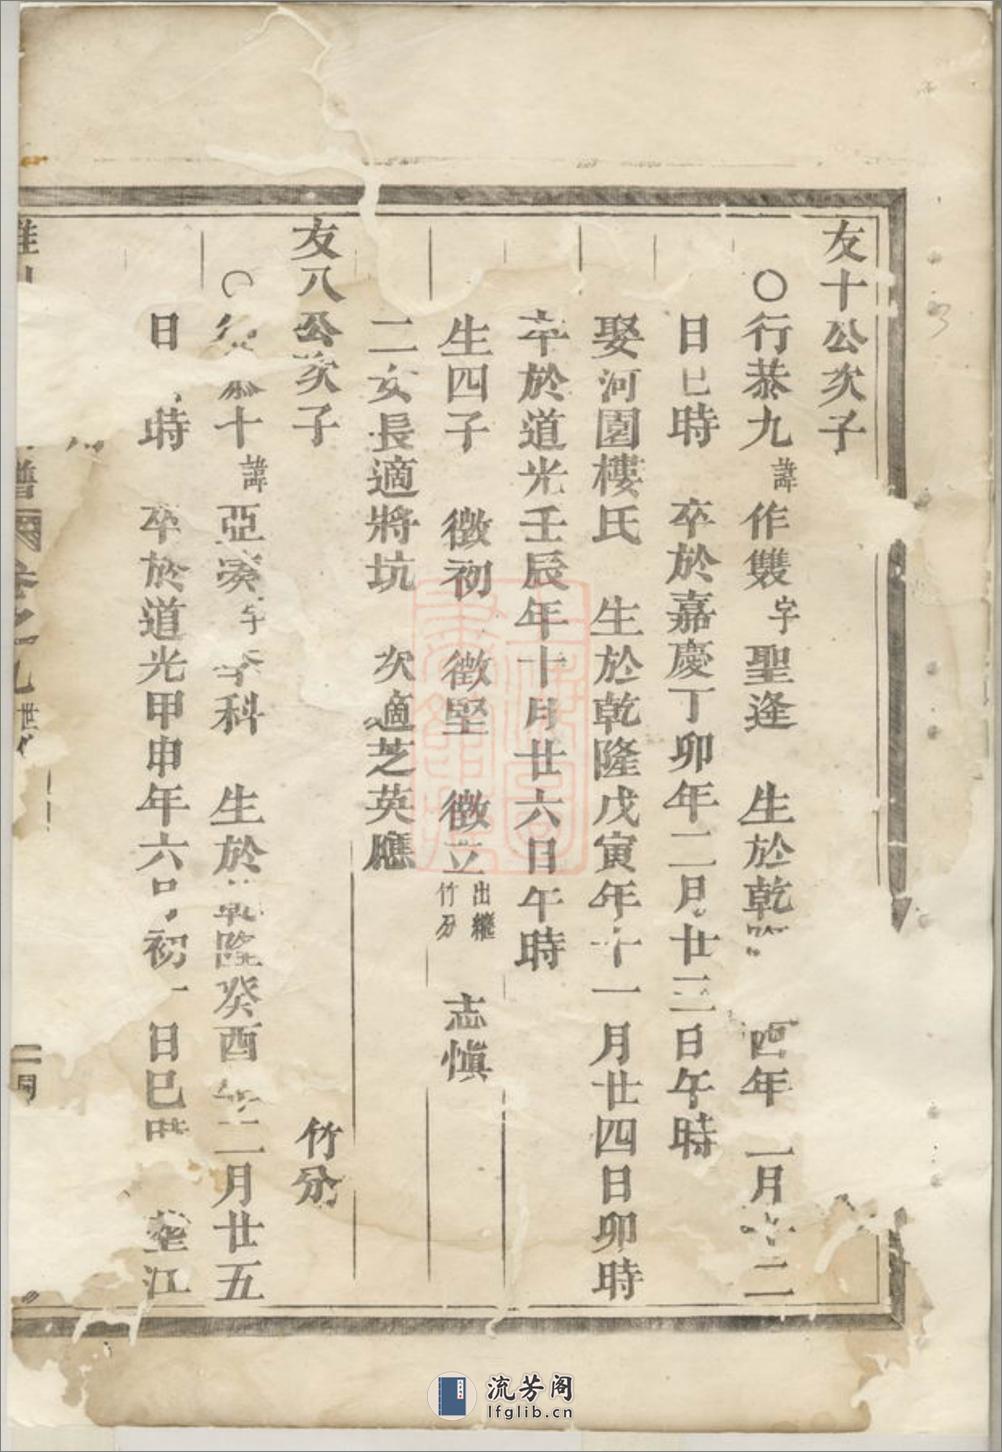 友十公次子
〇行恭九諱作雙字聖逢 生於乾 酉年 二月 二
日巳時 卒於嘉慶丁卯年二月廿三日午時
娶河園樓氏 生於乾隆戊寅年十一月廿四日卯時
卒於道光壬辰年十月廿六日午時
生四子 徵初 徵堅 徵立出繼竹分 志愼
二女長適將坑 次適芝英應
友八公次子 竹分
〇 十諱亞 字 科 生於乾隆癸酉年二月廿五
日 時 卒於道光甲申年六月初一日巳時 塟江
譜 卷之九 世
流芳阁
lfglib.cn